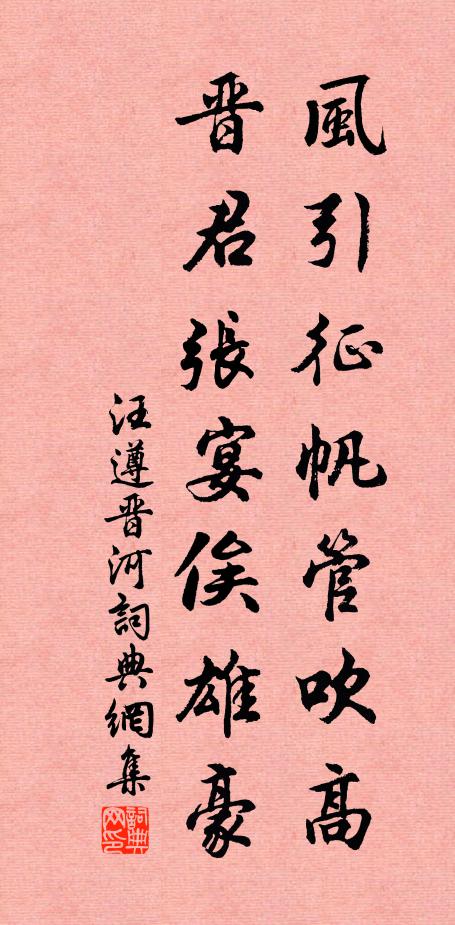 風引征帆管吹高
晋君張宴俟雄豪
汪遵晋河詞典網集
詞典网印